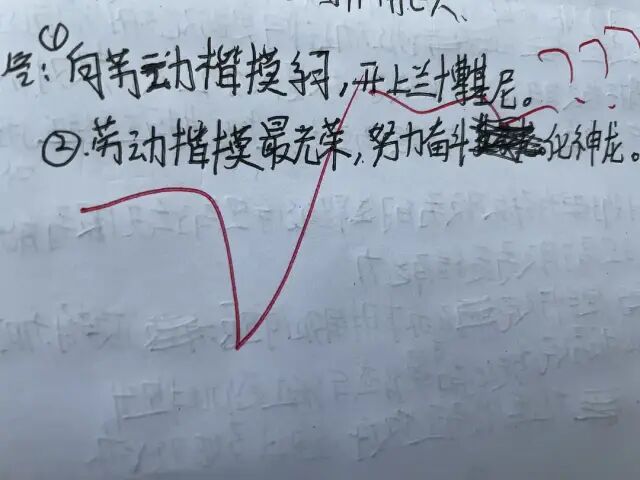 答：①向劳动楷模学习，开上兰博基尼。
②.劳动楷模最光荣，努力奋斗化神龙。
???